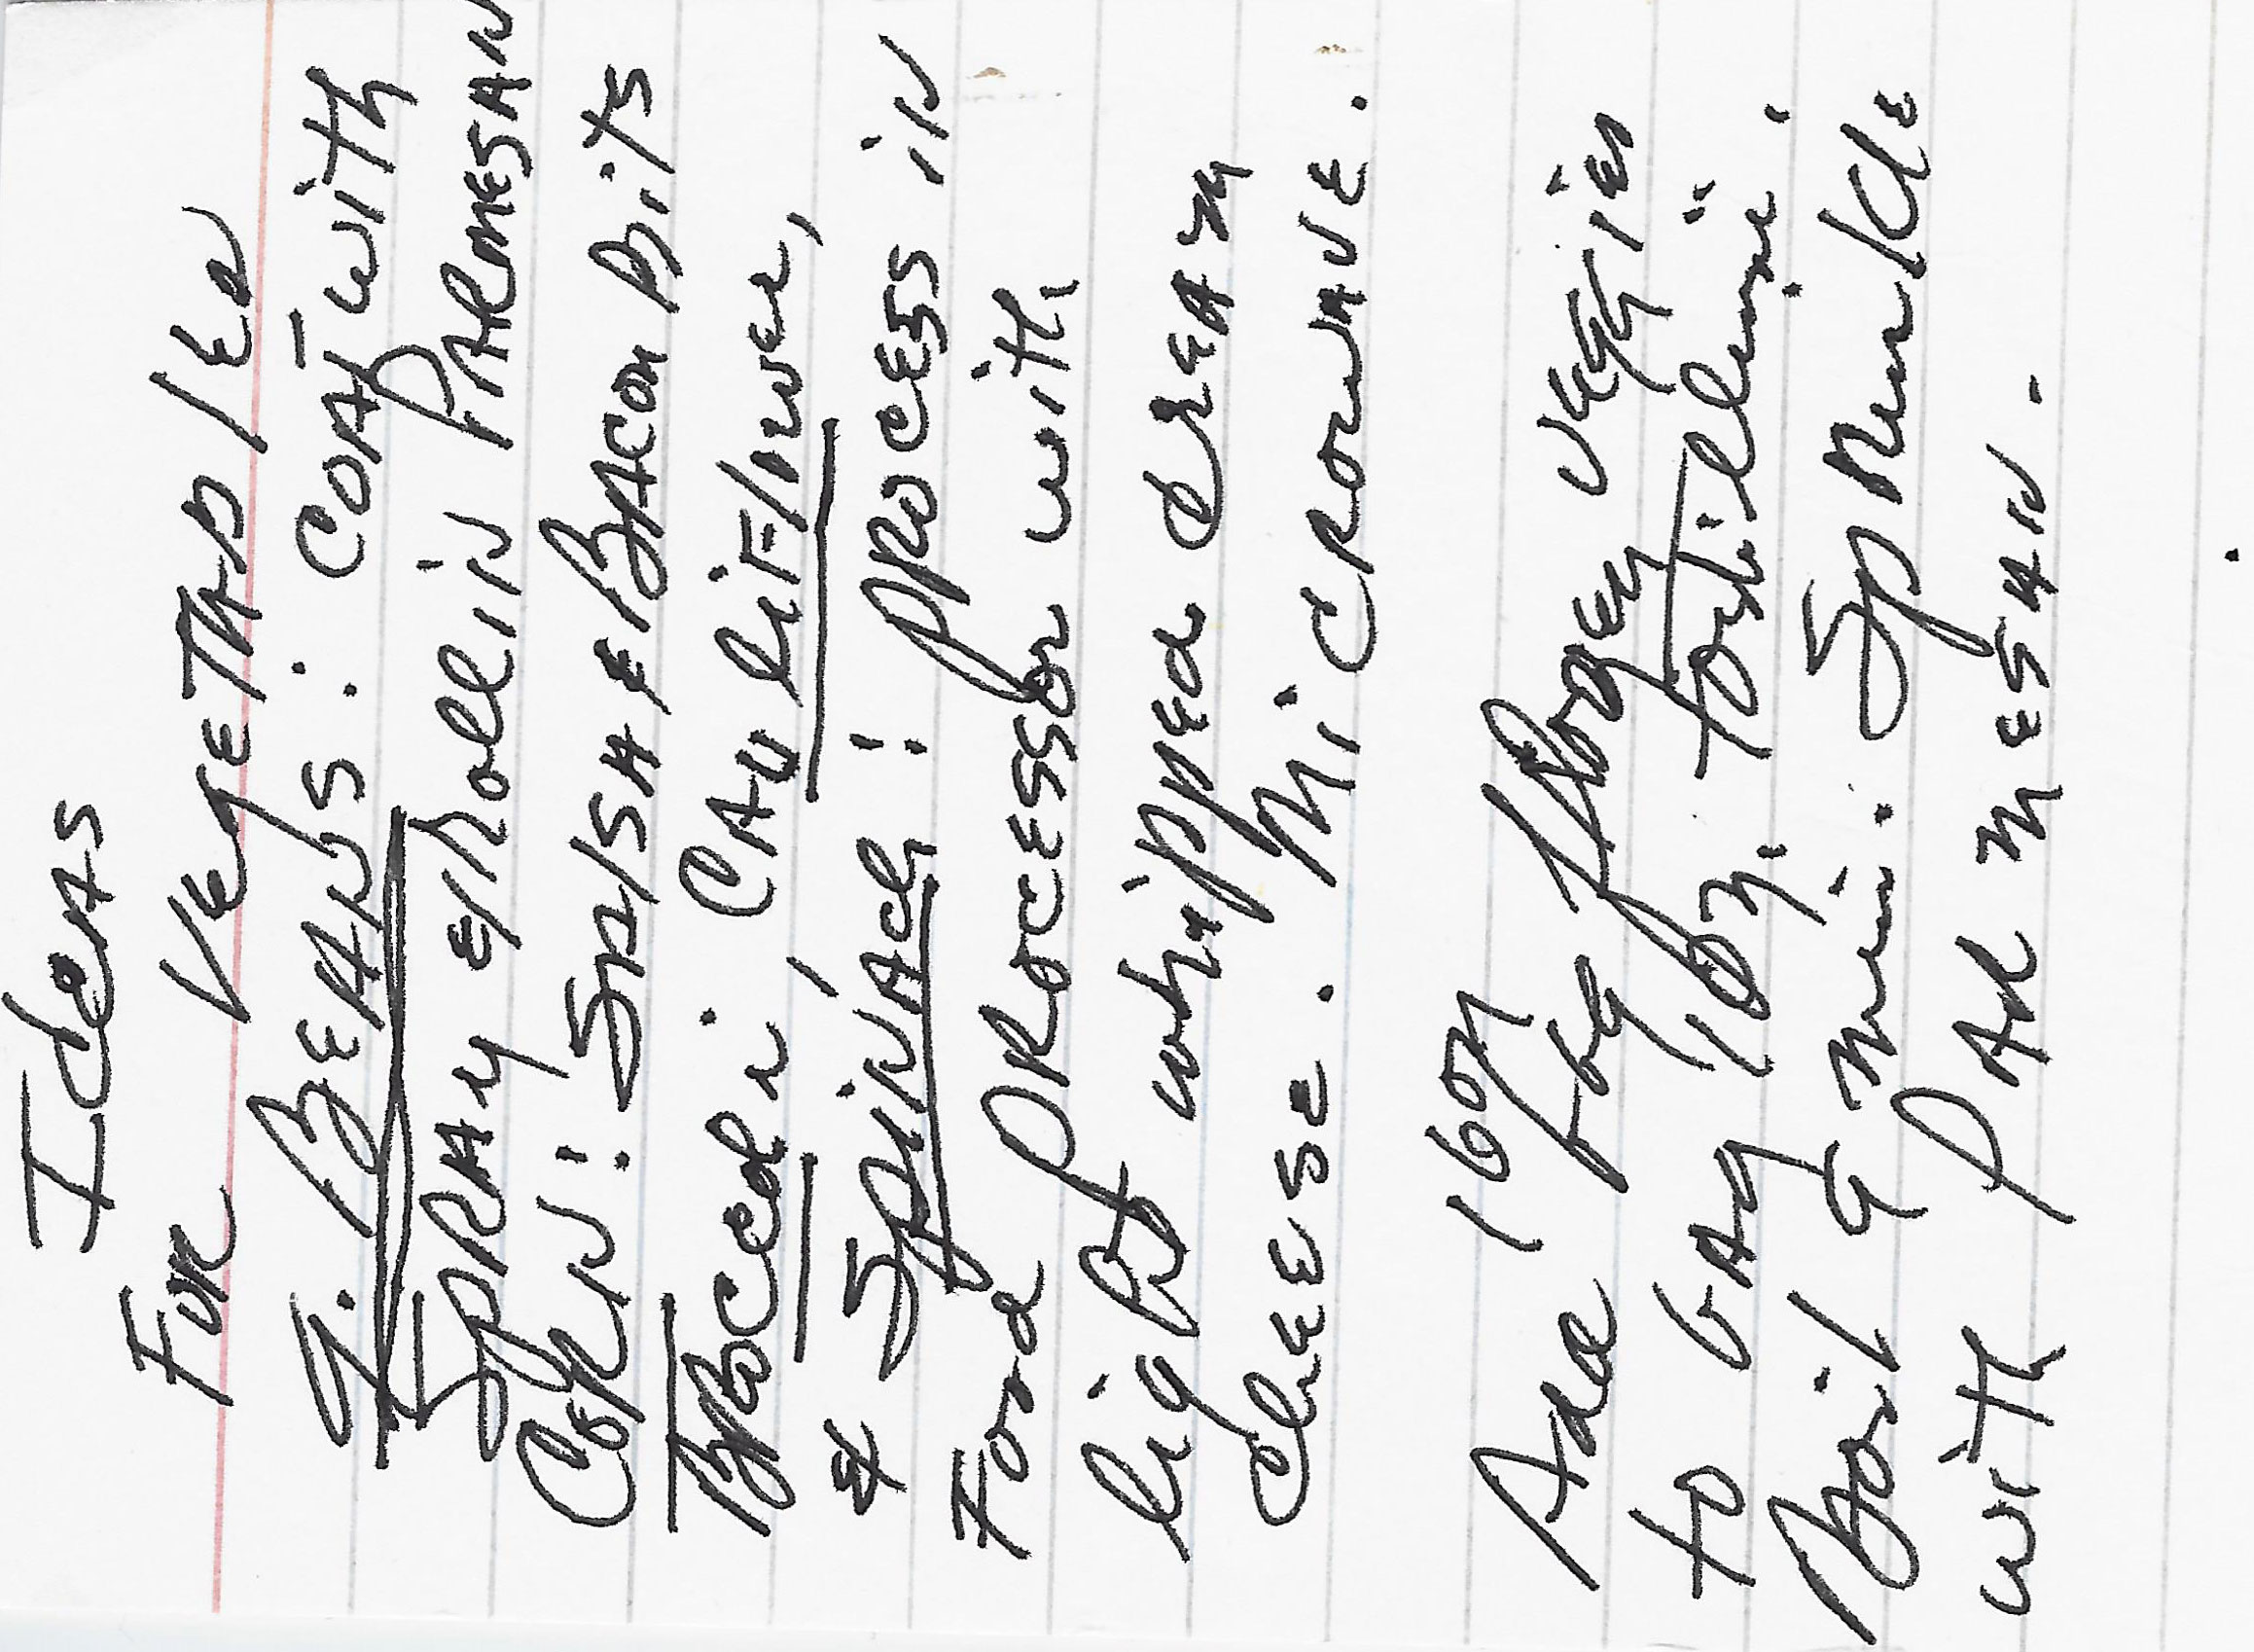 Ideas
For Vegetables
G. Beans: Coat with
Spray & roll in Parmesan
Corn: Salsa & Bacon Bits
Broccoli, Cauliflower,
& Spinach: Process in
Food Processor with
light whipped cream
cheese. Microwave.
Add 16oz bag frozen veggies
to bag 9oz. tortellini.
Boil 9 min. Sprinkle
with Parmesan.